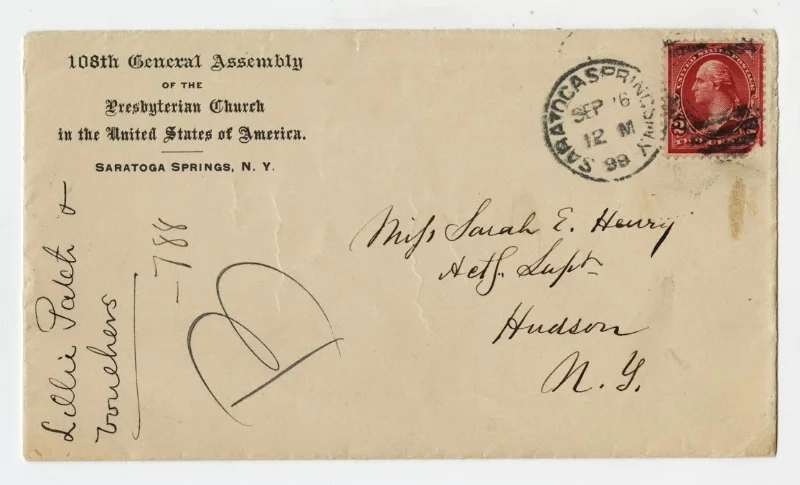 108th General Assembly
OF THE
Presbyterian Church
in the United States of America.
SARATOGA SPRINGS, N. Y.
SARATOGA SPRINGS, N.Y.
SEP 6
12 M
99
UNITED STATES POSTAGE
2
Miss Sarah E. Henry
Actg. Supt.
Hudson
N. Y.
Lillie Patch &
vouchers
-788
B